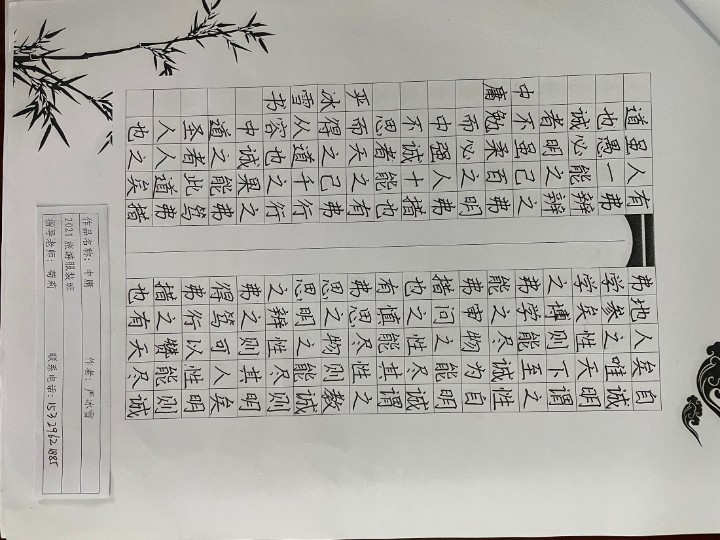 自诚明谓之性自明诚谓之教诚则明矣明则诚
矣唯天下至诚为能尽其性则能尽其人性能尽
人之性则能尽物之性能尽物之性则可以赞天
地参矣博学之审问之慎思之明辨之笃行之有
弗学学之弗能弗措也有弗思思之弗得弗措也
有弗辨辨之弗明弗措也有弗行行之弗笃弗措
人一能之己百之人十能之己千之果能此道矣
虽愚必明虽柔必强诚者天之道也诚之者人之
道也诚者不勉而中不思而得从容中道圣人也
中庸 严冰雪书
作品名称：中庸 作者：严冰雪
2021旅游服装班
指导老师：胡莉 联系电话：15329621885